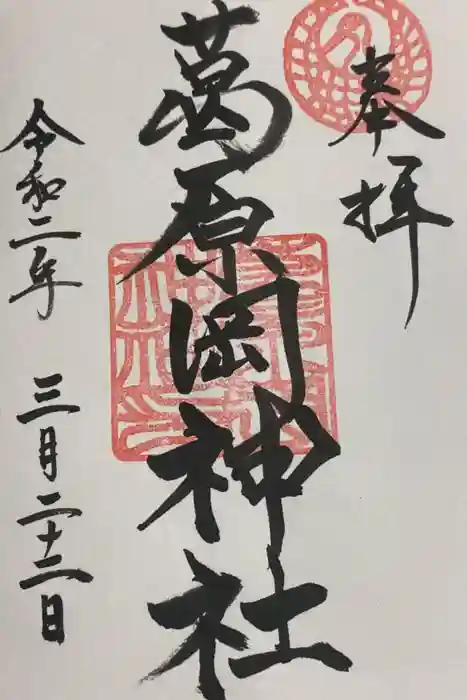 奉拝
葛原岡神社
令和二年 三月二十二日